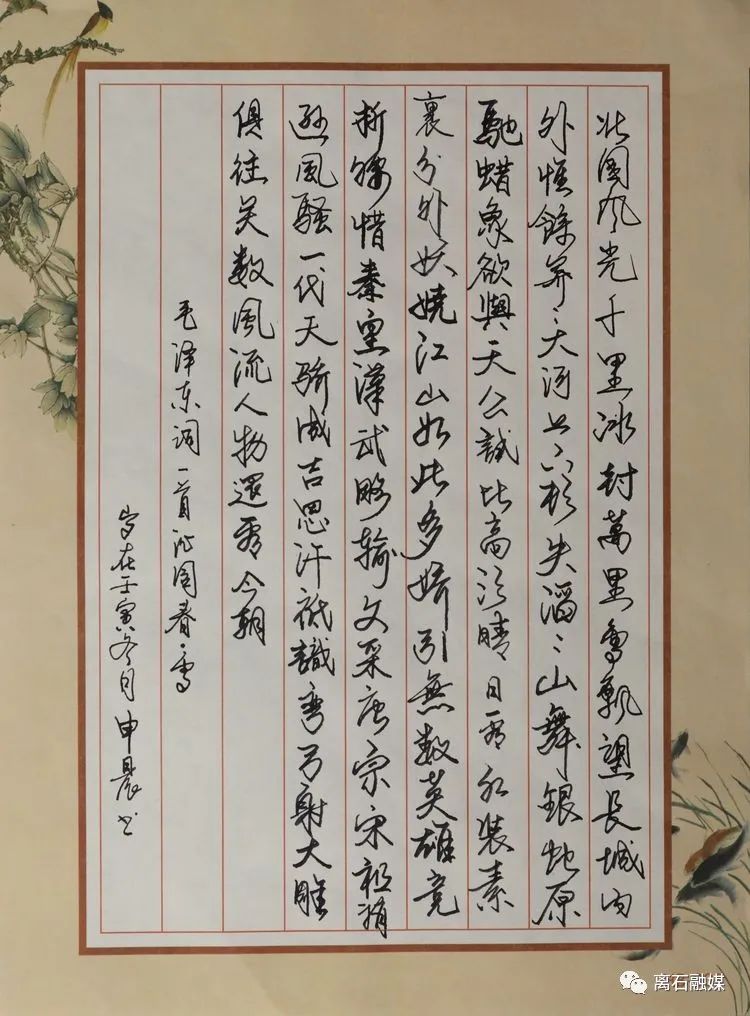 北國风光千里冰封萬里雪飘望長城内
外惟餘莽〻大河上下顿失滔〻山舞銀蛇原
馳蜡象欲與天公試比高须晴日看红装素
裹分外妖娆江山如此多娇引無数英雄竞
折腰惜秦皇漢武略输文采唐宗宋祖稍
逊風騷一代天骄成吉思汗祗識弯弓射大雕
俱往矣数風流人物還看今朝
毛泽东词一首沁园春·雪
岁在壬寅冬月申晨书
离石融媒